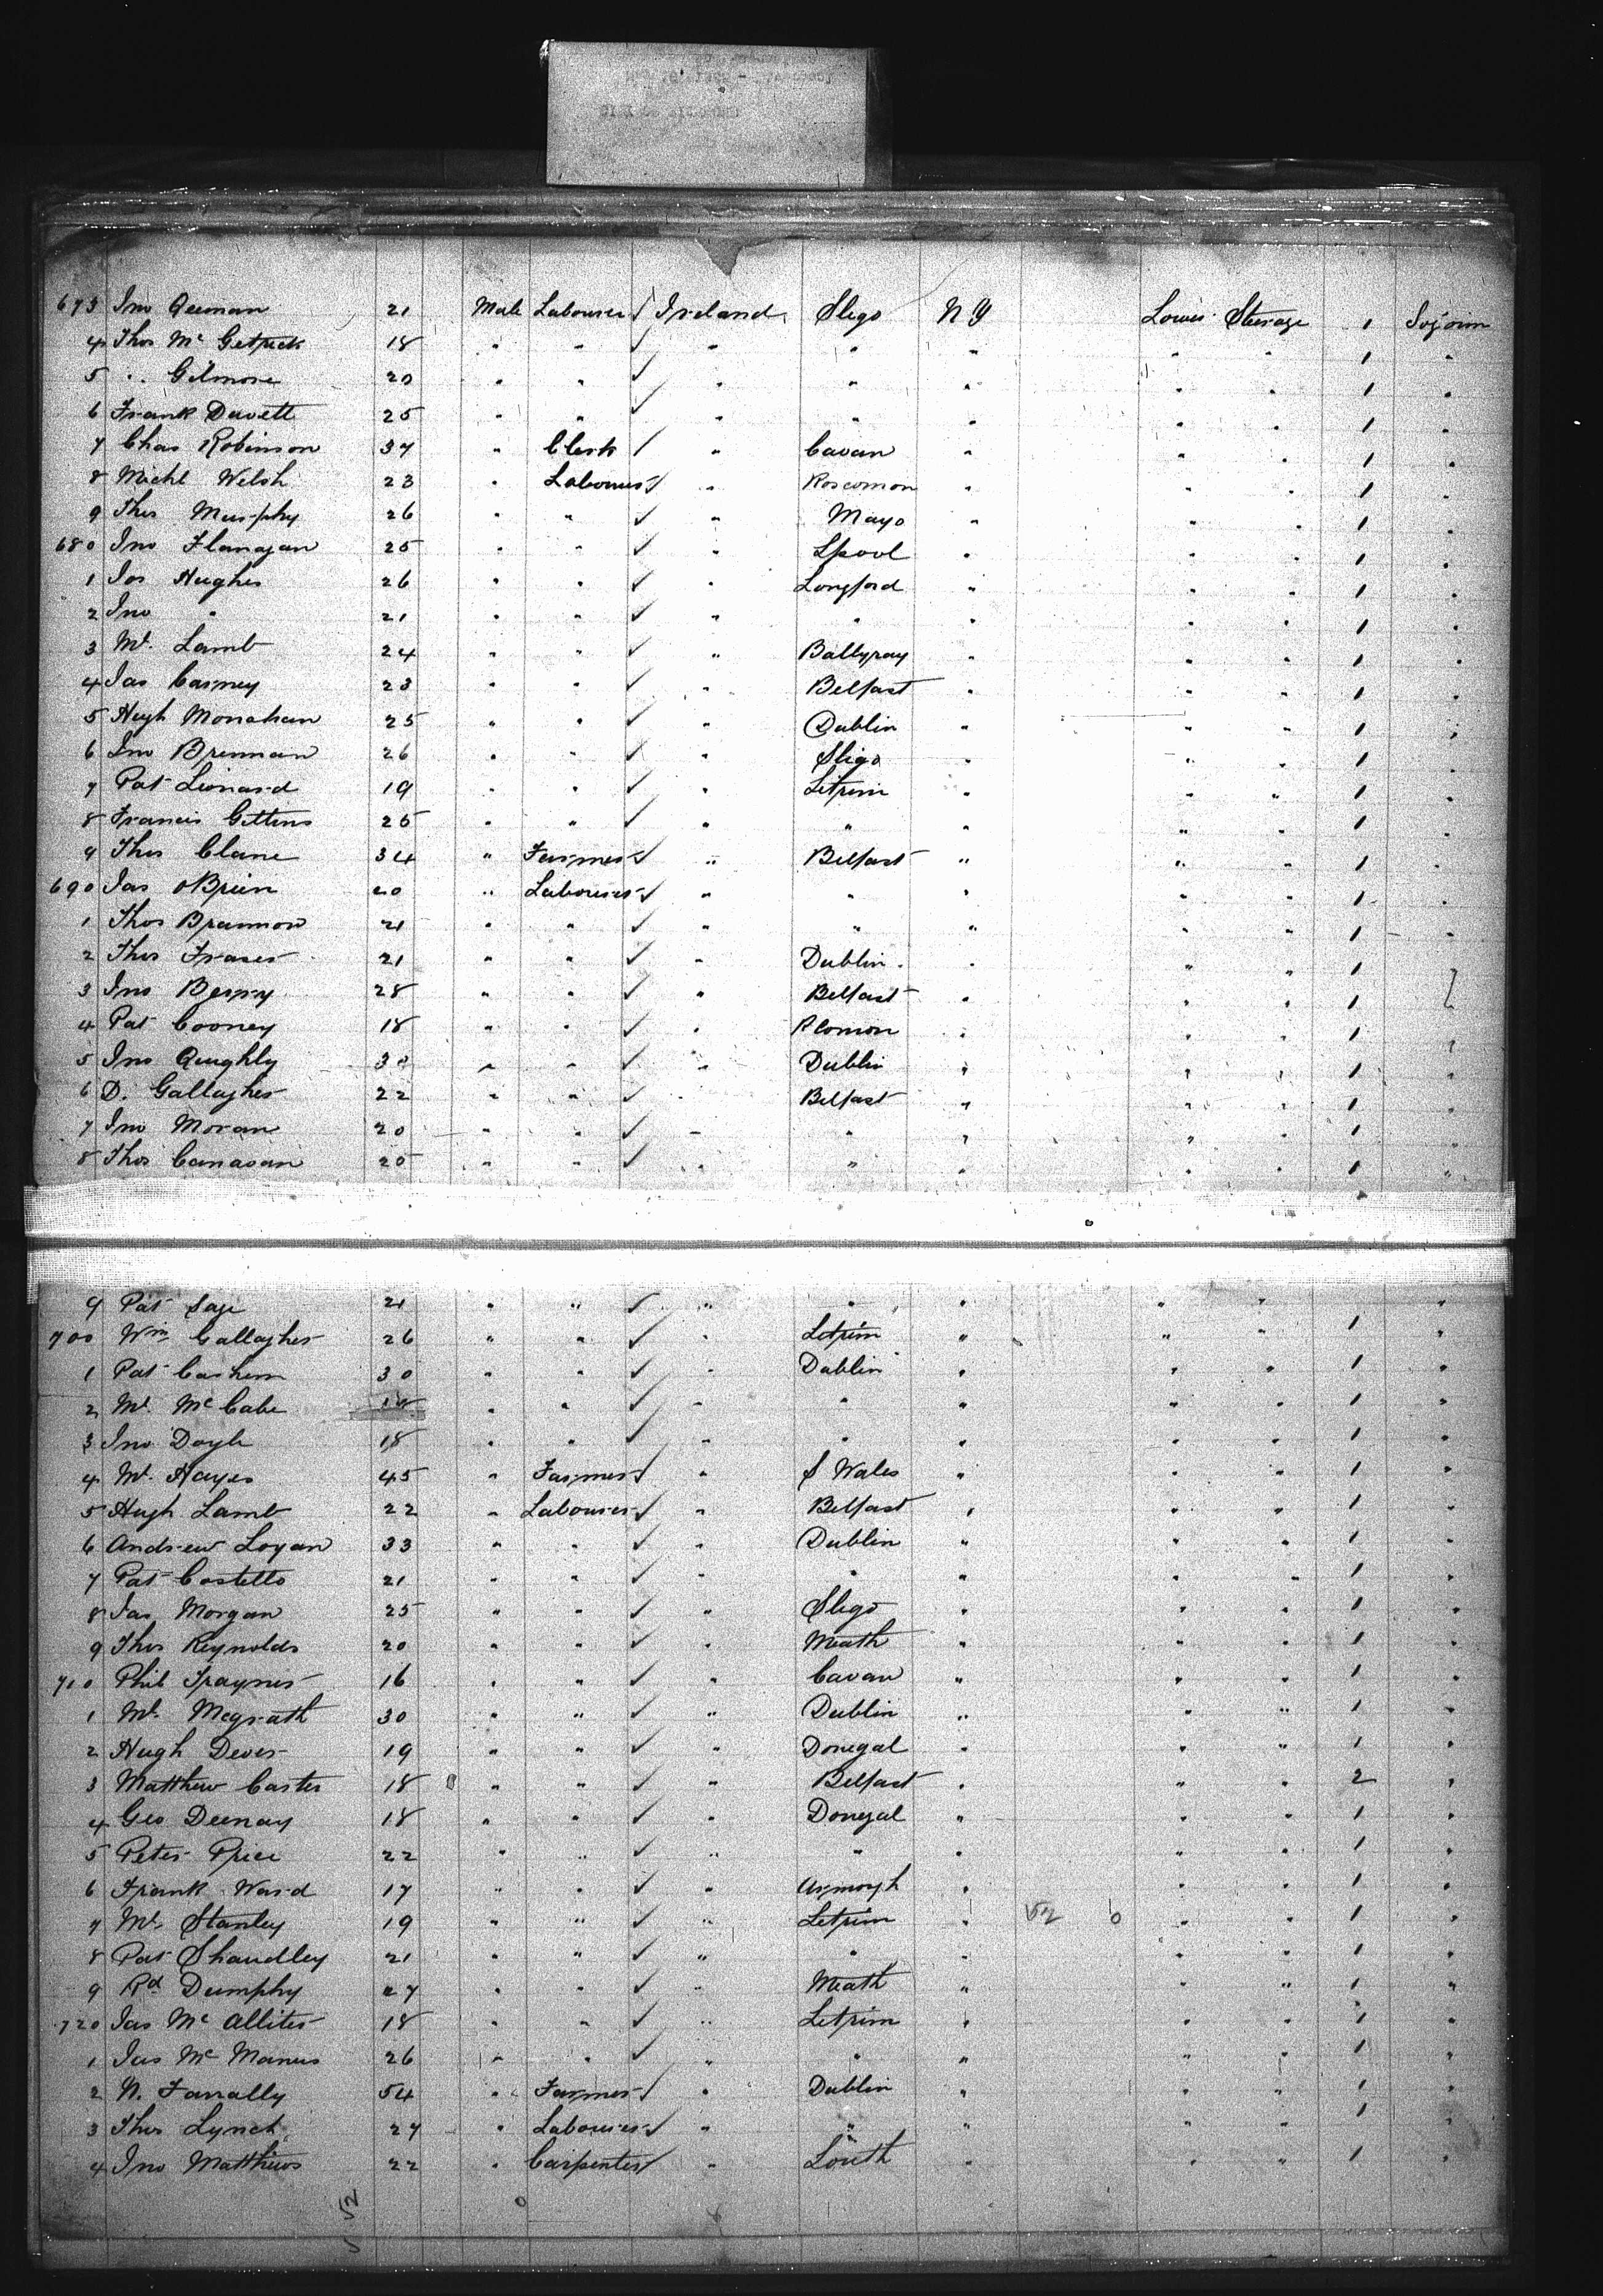 673 Jno Qeeman 21 Male Labourer √ Ireland Sligo N Y Lower Steerage 1 Sojourn
4 Thos Mc Getrick 18 " " ✓ " " " " " 1 "
5 " Gilmore 20 " " ✓ " " " " " 1 "
6 Frank Davett 25 " " ✓ " " " " " 1 "
7 Chas Robinson 37 " Clerk / " Cavan " " " 1 "
8 Michl Welsh 23 " Labourer √ " Roscomon " " " 1 "
9 Thos Murphy 26 " " ✓ " Mayo " " " 1 "
680 Jno Flanagan 25 " " ✓ " Lpool " " " 1 "
1 Jos Hughes 26 " " ✓ " Longford " " " 1 "
2 Jno " 21 " " ✓ " " " " " 1 "
3 Ml. Lamb 24 " " ✓ " Ballyray " " " 1 "
4 Jas Carney 23 " " ✓ " Belfast " " " 1 "
5 Hugh Monahan 25 " " ✓ " Dublin " " " 1 "
6 Jno Brennan 26 " " ✓ " Sligo " " " 1 "
7 Pat Leonard 19 " " ✓ " Letrim " " " 1 "
8 Francis Gittens 25 " " ✓ " " " " " 1 "
9 Thos Clane 34 " Farmer √ " Belfast " " " 1 "
690 Jas OBrien 20 " Labourer √ " " " " " 1 "
1 Thos Brannon 21 " " ✓ " " " " " 1 "
2 Thos Fraser 21 " " ✓ " Dublin " " " 1 "
3 Jno Berry 28 " " ✓ " Belfast " " " 1 "
4 Pat Cooney 18 " " ✓ " R Comon " " " 1 "
5 Jno Qughly 30 " " ✓ " Dublin " " " 1 "
6 D. Gallagher 22 " " ✓ " Belfast " " " 1 "
7 Jno Moran 20 " " ✓ " " " " " 1 "
8 Thos Canavan 25 " " ✓ " " " " " 1 "
9 Pat Sage 21 " " ✓ " " " " " "
700 Wm Gallagher 26 " " ✓ " Letrim " " " 1 "
1 Pat Cashem 30 " " ✓ " Dublin " " " 1 "
2 Ml. Mc Cabe 18 " " ✓ " " " " " 1 "
3 Jno Doyle 18 " " ✓ " " " " " 1 "
4 Ml. Hayes 45 " Farmer √ " S Wales " " " 1 "
5 Hugh Lamb 22 " Labourer √ " Belfast " " " 1 "
6 Andrew Logan 33 " " ✓ " Dublin " " " 1 "
7 Pat Costello 21 " " ✓ " " " " " 1 "
8 Jas Morgan 25 " " ✓ " Sligo " " " 1 "
9 Thos Reynolds 20 " " ✓ " Meath " " " 1 "
710 Phil Traynor 16 " " ✓ " Cavan " " " 1 "
1 Ml. Megrath 30 " " ✓ " Dublin " " " 1 "
2 Hugh Dever 19 " " ✓ " Donegal " " " 1 "
3 Matthew Carter 18 " " ✓ " Belfast " " " 2 "
4 Geo Deenay 18 " " ✓ " Donegal " " " 1 "
5 Peter Price 22 " " ✓ " " " " " 1 "
6 Frank Ward 17 " " ✓ " Armagh " " " 1 "
7 Ml. Stanley 19 " " ✓ " Letrim " 52 0 " " 1 "
8 Pat Shaudley 21 " " ✓ " " " " " 1 "
9 Rd Dumphy 27 " " ✓ " Meath " " " 1 "
720 Jas Mc Alliter 18 " " ✓ " Letrim " " " 1 "
1 Jas Mc Manus 26 " " ✓ " " " " " 1 "
2 N. Fanally 54 " Farmer √ " Dublin " " " 1 "
3 Thos Lynch 27 " Labourer √ " " " " " 1 "
4 Jno Matthews 22 " Carpenter √ " Louth " " " 1 "